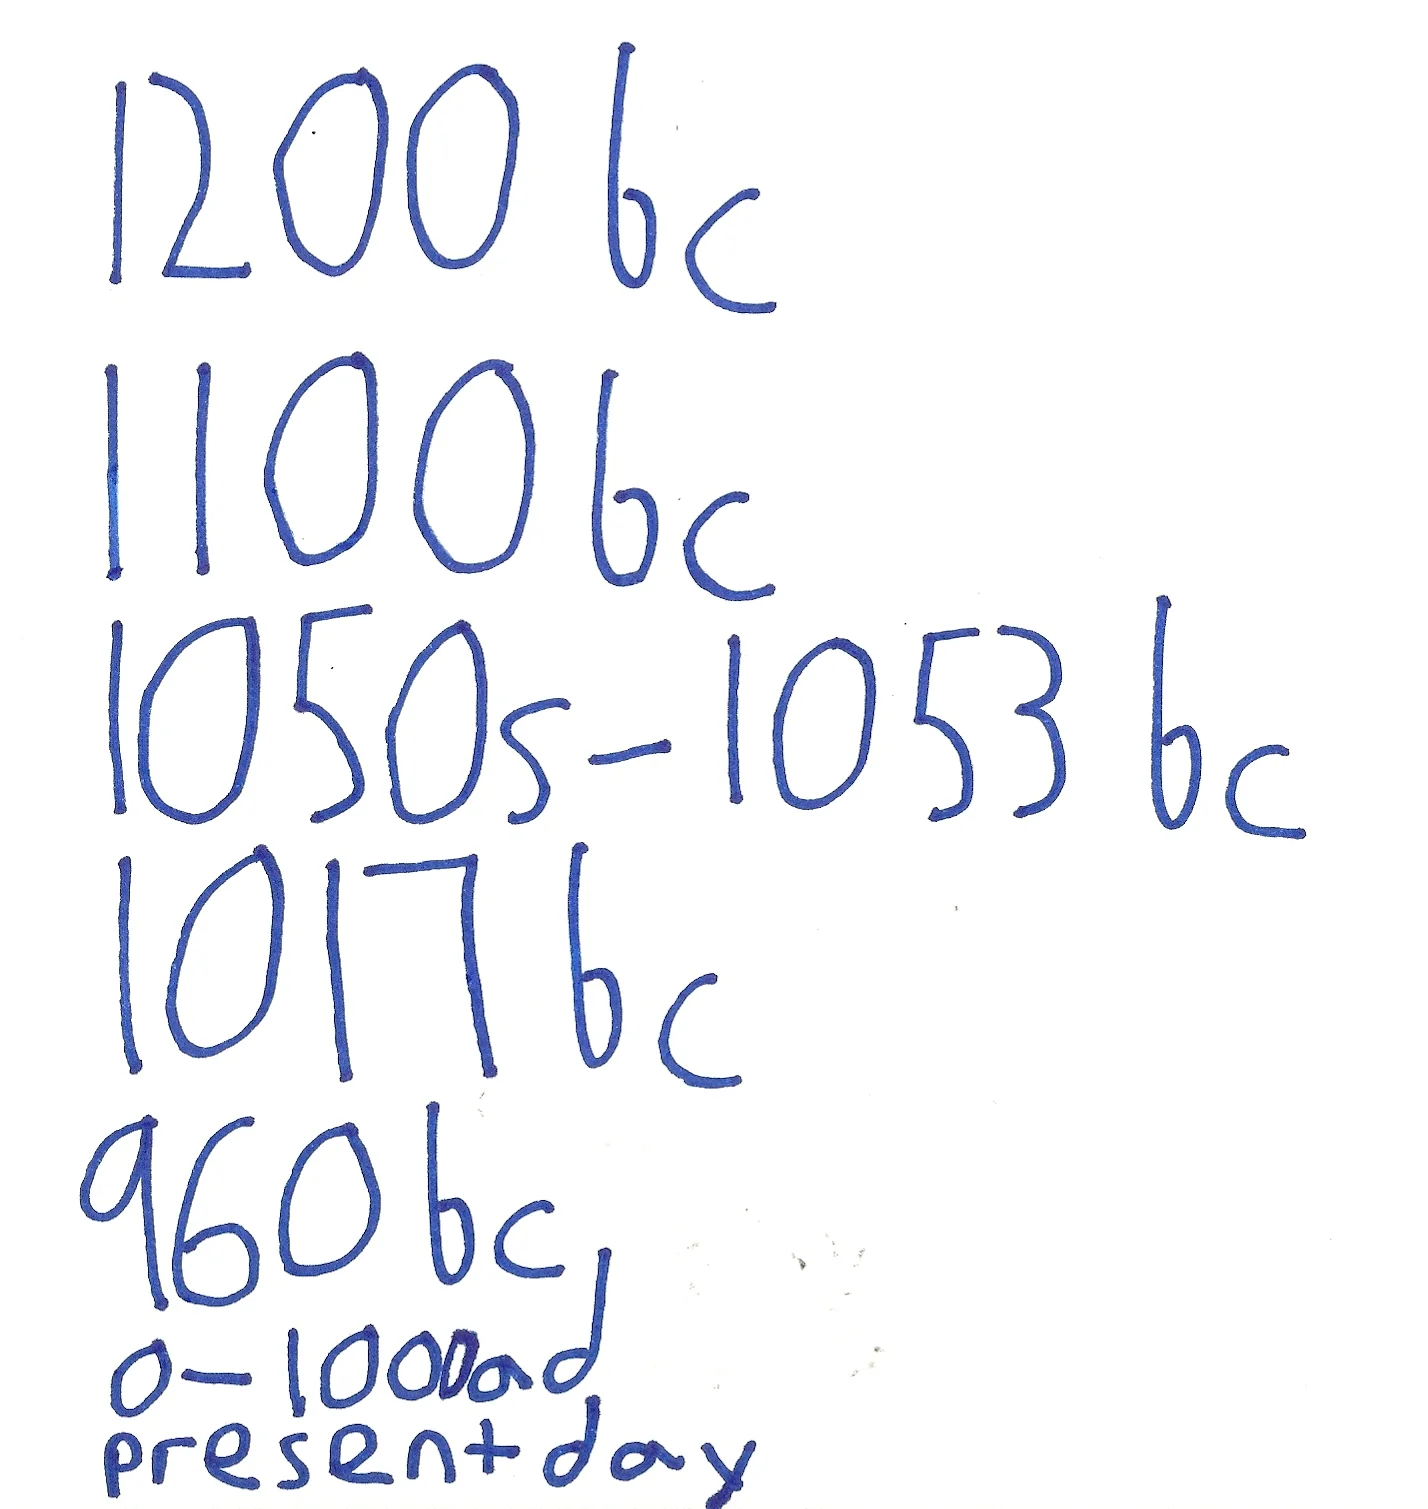 1200 bc
1100 bc
1050s-1053 bc
1017 bc
960 bc
0-1000ad
present day